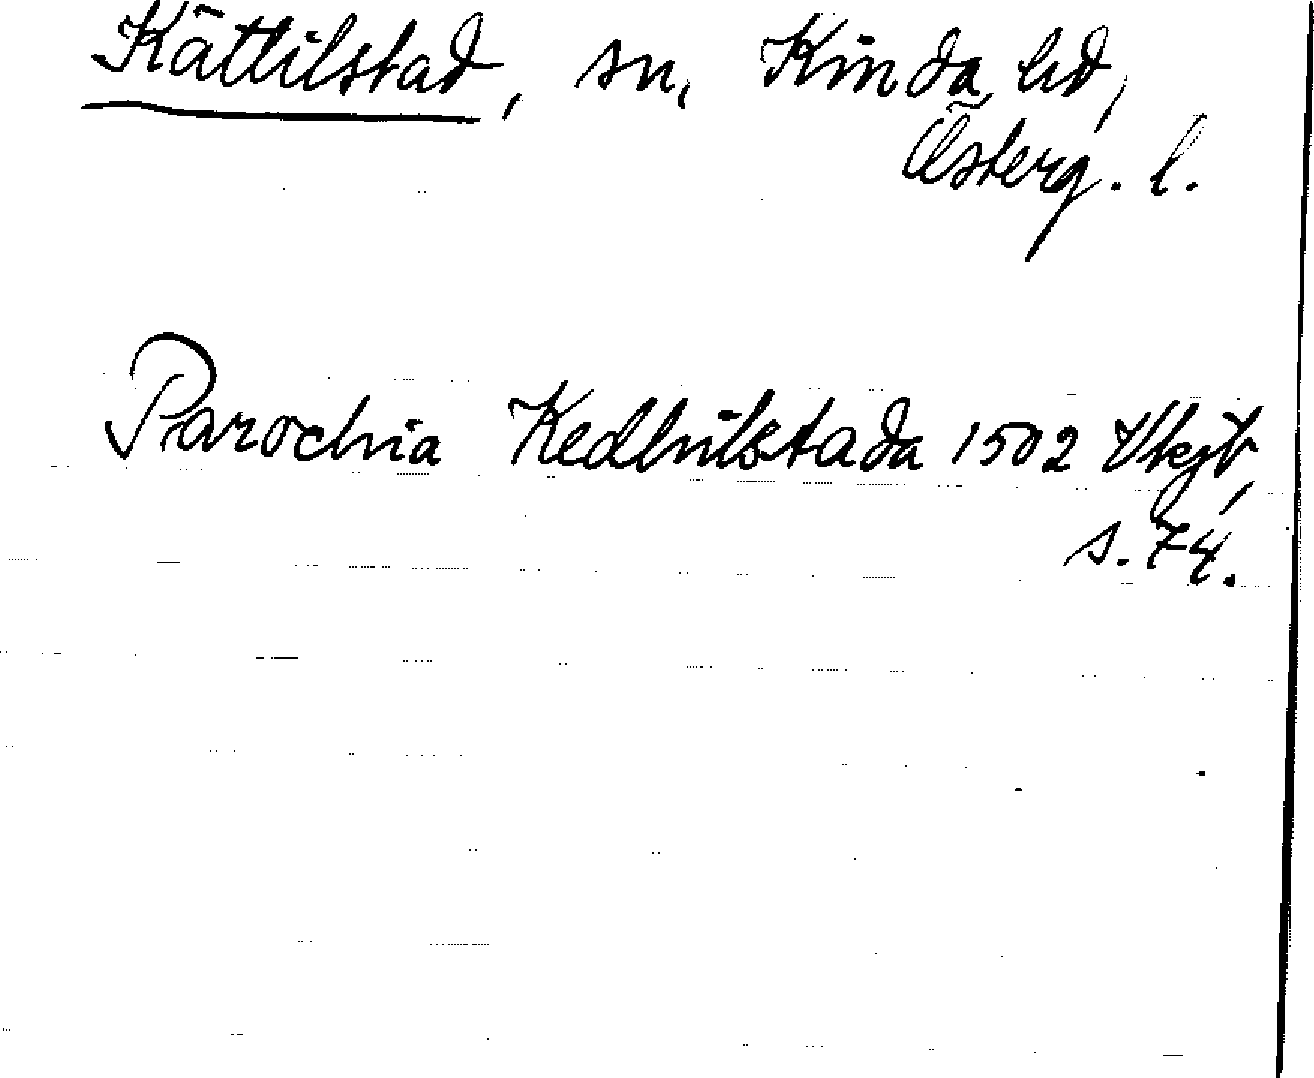 Kättilstad, sn, Kinda hd,
Österg. l.
Parochia Kedhilstada 1502 Vkjb,
s. 74.